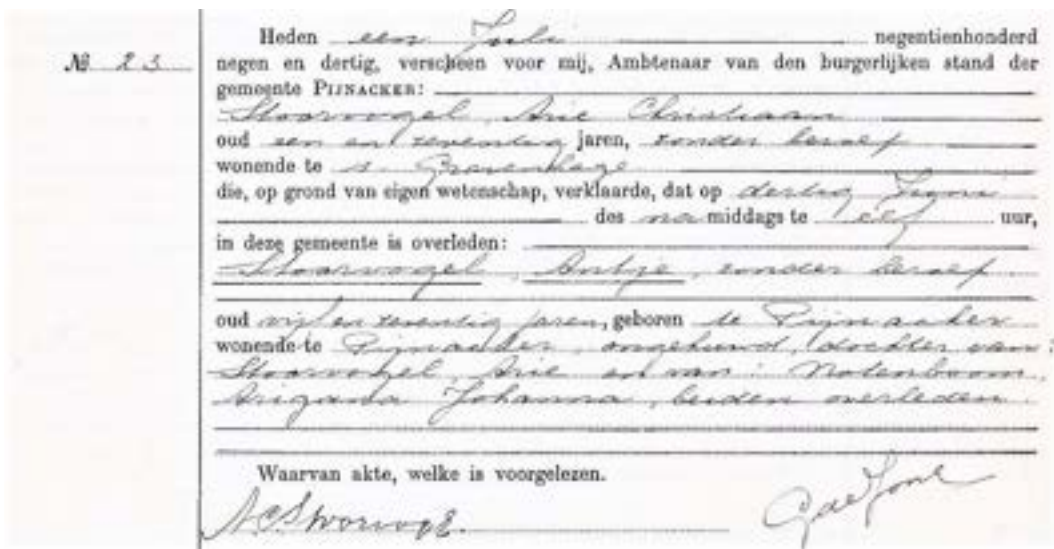 Heden een Juli negentienhonderd
№ 23
negen en dertig, verscheen voor mij, Ambtenaar van den burgerlijken stand der
gemeente PIJNACKER:
Stoorvogel, Arie Christiaan
oud een en zeventig jaren, zonder beroep
wonende te s Gravenhage
die, op grond van eigen wetenschap, verklaarde, dat op dertig Juni
des na middags te elf uur,
in deze gemeente is overleden:
Stoorvogel, Antje, zonder beroep
oud vijf en zeventig jaren, geboren te Pijnacker
wonende te Pijnacker, ongehuwd, dochter van:
Stoorvogel, Arie en van: Notenboom,
Johanna, beiden overleden.
Waarvan akte, welke is voorgelezen.